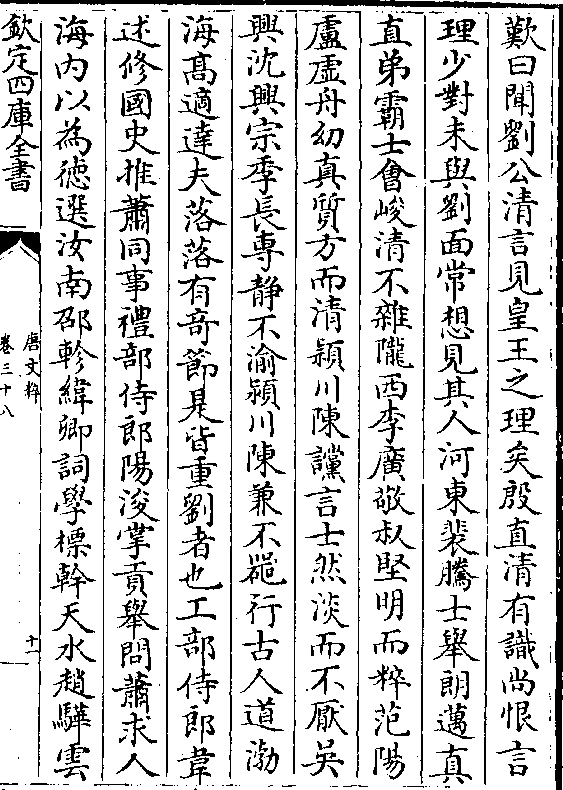 歎曰聞劉公清言見皇王之理矣殷直清有識尚恨言
理少對未與劉面常想見其人河東裴騰士舉朗邁真
直弟霸士會峻清不雜隴西李廣敬叔堅明而粹范陽
盧虛舟幼真質方而清潁川陳讜言士然淡而不厭吳
興沈興宗季長專靜不渝潁川陳兼不器行古人道渤
海髙適達夫落落有竒節是皆重劉者也工部侍郎韋
述修國史推蕭同事禮部侍郎陽浚掌貢舉問蕭求人
海内以為徳選汝南邵軫緯卿詞學標幹天水趙驊雲
欽定四庫全書
唐文粹
卷三十八
十一